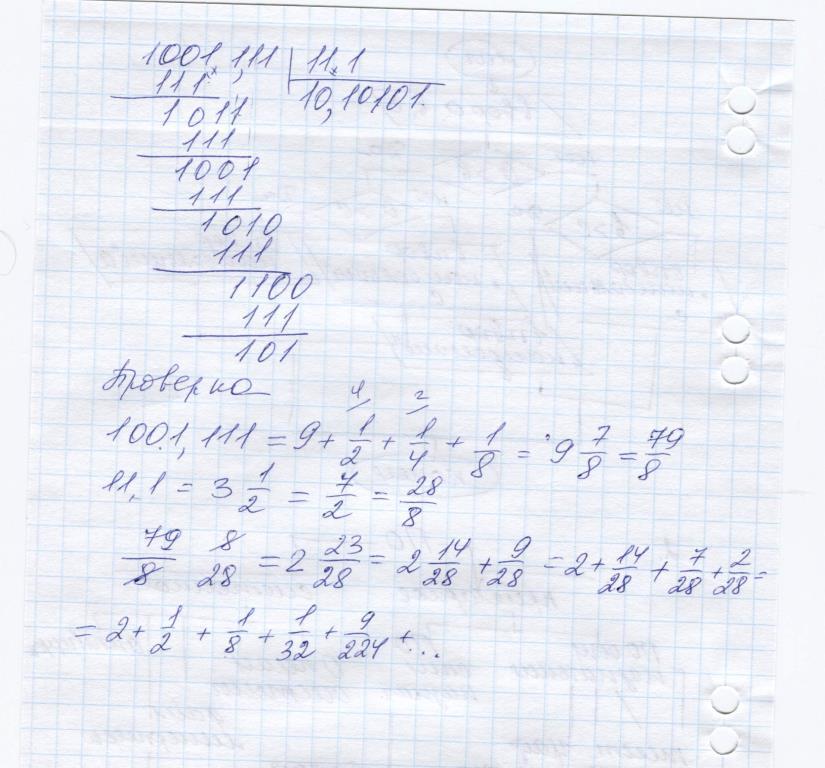 1001,111 | 11,1
111 | 10,10101.
1011
111
1001
111
1010
111
1100
111
101
Проверка
4 2
1001,111 = 9 + 1/2 + 1/4 + 1/8 = 9 7/8 = 79/8
11,1 = 3 1/2 = 7/2 = 28/8
79/8 8/28 = 2 23/28 = 2 14/28 + 9/28 = 2 + 14/28 + 7/28 + 2/28 =
= 2 + 1/2 + 1/8 + 1/32 + 9/224 + ...